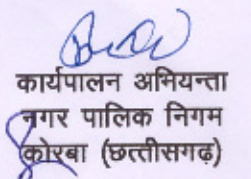 कार्यपालन अभियन्ता
नगर पालिक निगम
कोरबा (छत्तीसगढ़)